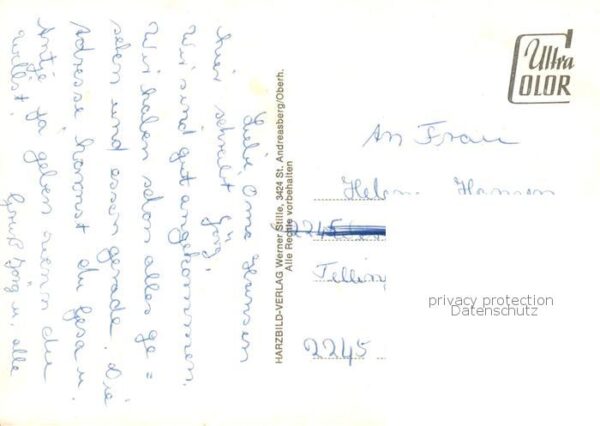 Liebe Oma Hansen
hier schreibt Jörg.
Wir sind gut angekommen.
Wir haben schon alles ge=
sehen und essen gerade. Die
Adresse kannst du Gesa u.
Antje ja geben wenn du
willst.
Gruß Jörg u. alle
HARZBILD-VERLAG Werner Stille, 3424 St. Andreasberg/Oberh.
Alle Rechte vorbehalten
Ultra
COLOR
An Frau
Helene Hansen
2245
Telling
2245
privacy protection
Datenschutz